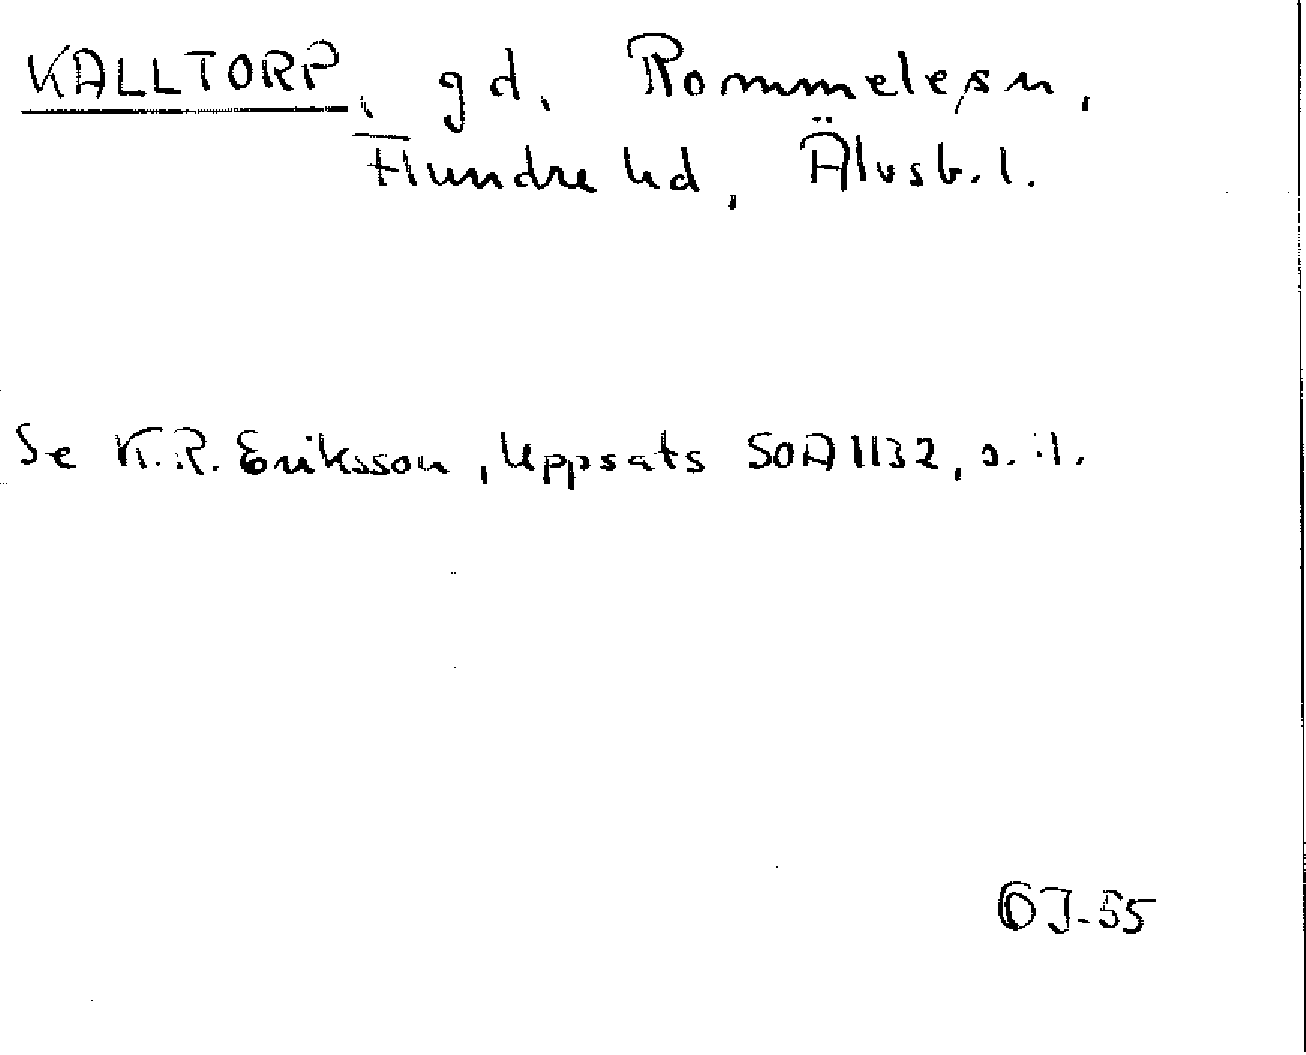 KALLTORP, gd, Rommelesn,
Flundre hd, Älvsb.l.
Se K.R. Eriksson, Uppsats SOA 1132, s. 11.
OJ-55